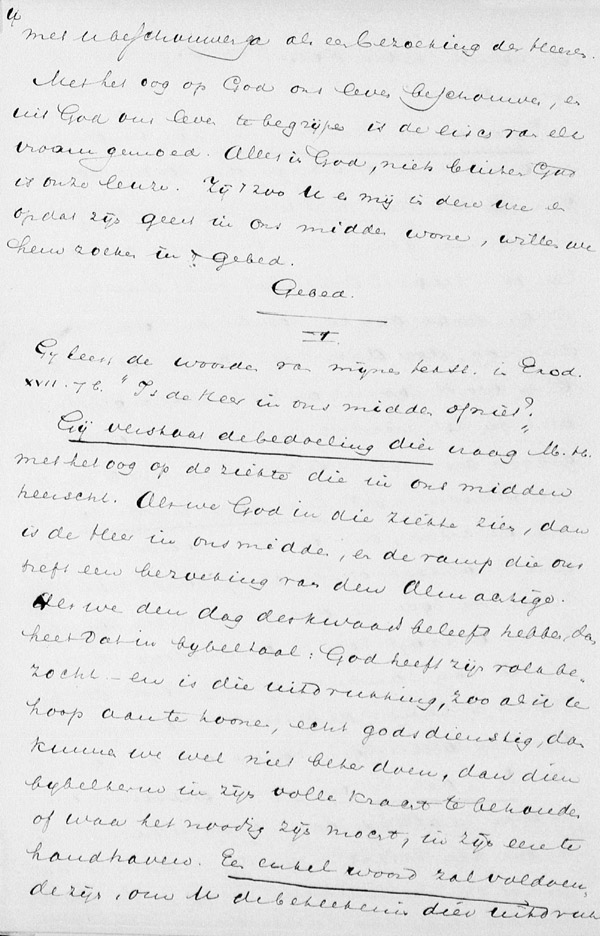 4
met u beschouwen als een bezoeking des Heeren.
Met het oog op God ons leven beschouwen, en
uit God ons leven te begrijpen is de eisch van elk
vroom gemoed. Alles in God, niets buiten God
is onze leuze. Zij 't zoo U en mij in deze ure en
opdat zijn geest in ons midden wone, willen we
hem zoeken in 't gebed.
Gebed.
I.
Gy leest de woorden van mijnen tekst in Exod.
XVII. 7b. "Is de Heer in ons midden of niet?"
Gij verstaat de bedoeling dier vraag M. H.
met het oog op de ziekte die in ons midden
heerscht. Als we God in die ziekte zien, dan
is de Heer in ons midden, en de ramp die ons
treft een bezoeking van den Almachtige.
Als we den dag des kwaads beleefd hebben, dan
heet dat in bybeltaal: God heeft zijn volk be-
zocht – en is die uitdrukking, zoo als ik te
hoop aan te toonen, echt godsdienstig, dan
kunnen we wel niet beter doen, dan dien
bybelterm in zijn volle kracht te behouden
of waar het noodig zijn mocht, in zijn eer te
handhaven. Een enkel woord zal voldoen-
de zijn, om U de beteekenis dier uitdruk